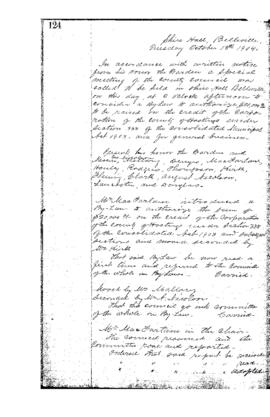 124
Shire Hall, Belleville,
Tuesday October 18th 1904.
In accordance with written notice
from his honor the Warden a special
meeting of the County Council was
called to be held in Shire Hall Belleville
on this day at 2 o'clock afternoon to
consider a By Law to authorize
to be raised on the credit of the Corpo-
ration of the County of Hastings under
Section of the Consolidated Municipal
Act 1903. and for general business.
Present his honor the Warden and
Messrs Mallory, MacFarlane,
Hanley, Rodgers, Thompson, Kirk,
Clark, Newton,
and Douglas.
Mr MacFarlane introduced a
By-Law to authorize the sum of
on the credit of the Corporation
of the County of Hastings under Section
of the Consolidated Act 1903 and
sections and moved seconded by
Mr Kirk
That said By Law be now read a
first time and referred to the Committee
of the whole on By Laws. Carried.
Moved by Mr Mallory
Seconded by Mr
That this council go into Committee
of the whole on By Law. Carried.
Mr MacFarlane in the Chair.
The Council resumed and the
Committee rose and reported.
Ordered that said report be received
" " " " read
" " " " adopted